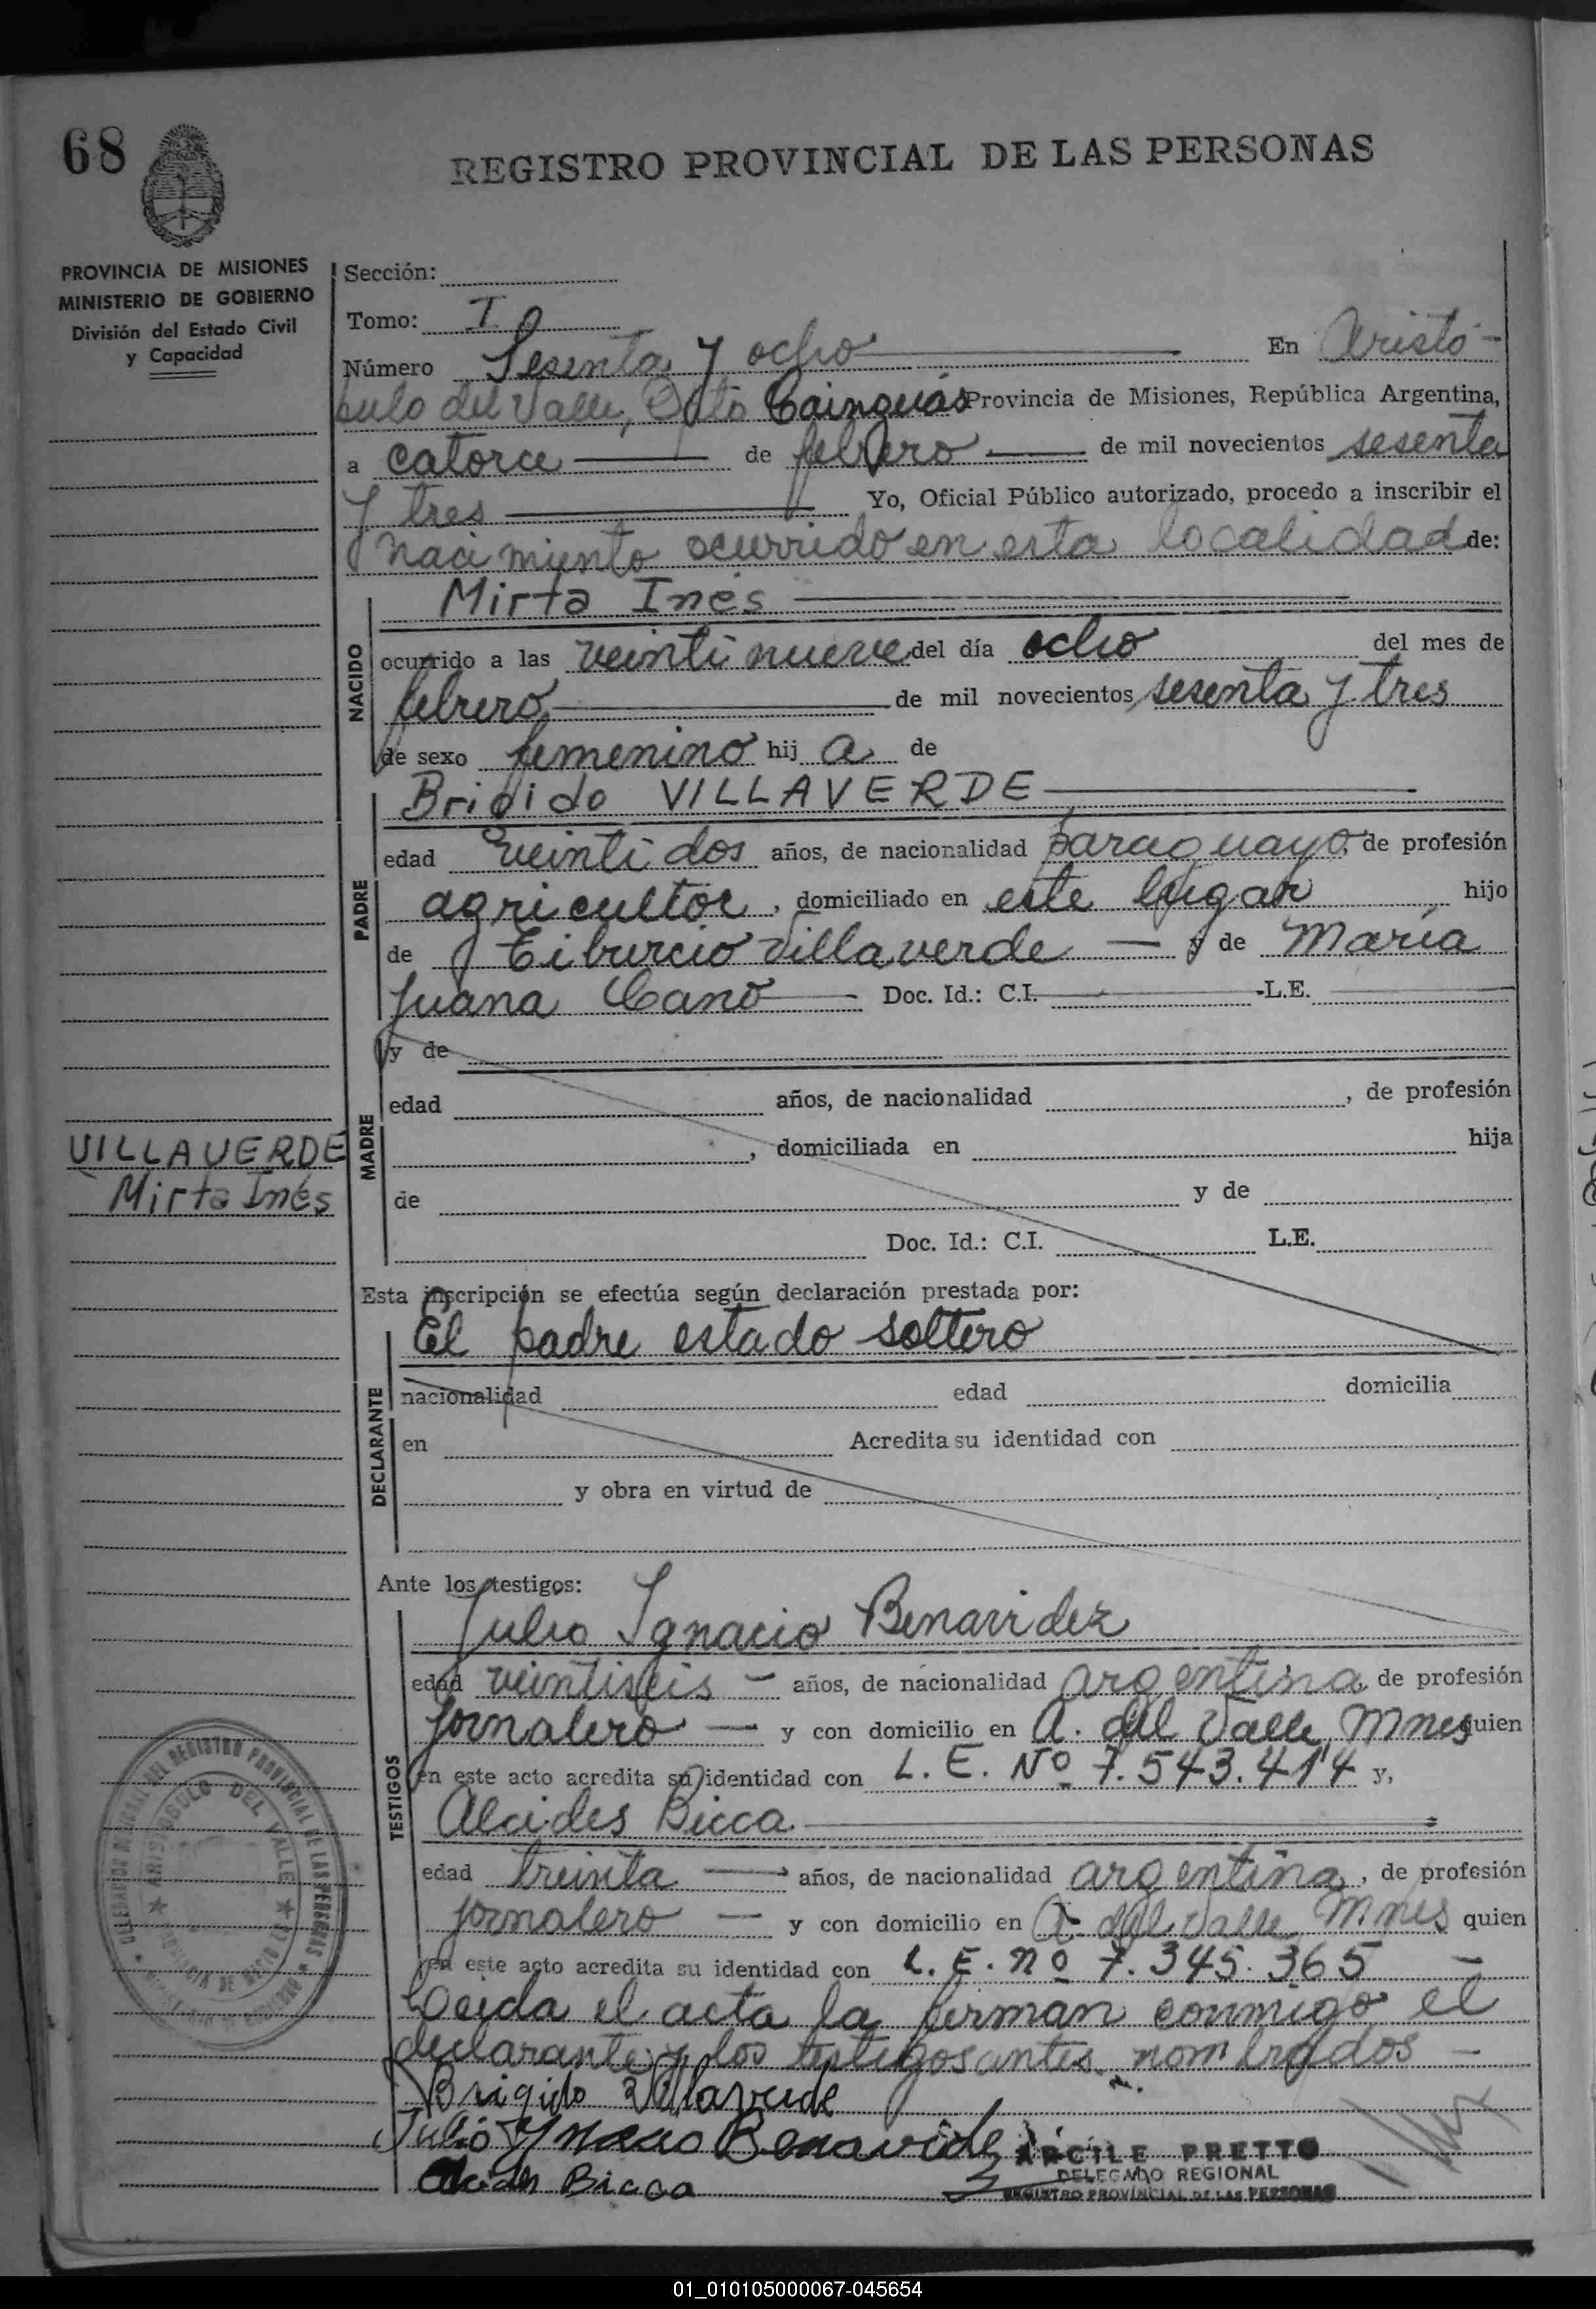 68
REGISTRO PROVINCIAL DE LAS PERSONAS
PROVINCIA DE MISIONES
MINISTERIO DE GOBIERNO
División del Estado Civil
y Capacidad
Sección:
Tomo: I
Número Sesenta y ocho En Aristó-
bulo del Valle, Dpto Cainguás Provincia de Misiones, República Argentina,
a catorce de febrero de mil novecientos sesenta
y tres Yo, Oficial Público autorizado, procedo a inscribir el
nacimiento ocurrido en esta localidad de:
NACIDO
Mirta Inés
ocurrido a las veintinueve del día ocho del mes de
febrero de mil novecientos sesenta y tres
de sexo femenino hij a de
PADRE
Brigido VILLAVERDE
edad veintidos años, de nacionalidad paraguaya, de profesión
agricultor, domiciliado en este lugar hijo
de Tiburcio Villaverde y de María
Juana Cano Doc. Id.: C.I. -L.E.
MADRE
y de
edad años, de nacionalidad , de profesión
, domiciliada en hija
de y de
Doc. Id.: C.I. L.E.
VILLAVERDE
Mirta Inés
Esta inscripción se efectúa según declaración prestada por:
DECLARANTE
El padre estado soltero
nacionalidad edad domicilia
en Acredita su identidad con
y obra en virtud de
Ante los testigos:
TESTIGOS
Julio Ignacio Benavidez
edad veintiseis - años, de nacionalidad argentina, de profesión
jornalero - y con domicilio en A. del Valle, Mnes quien
en este acto acredita su identidad con L. E. Nº 7.543.414 y,
Alcides Bicca
edad treinta años, de nacionalidad argentina, de profesión
jornalero - y con domicilio en A. del Valle Mnes quien
en este acto acredita su identidad con L. E. nº 7.345.365 -
Leida el acta la firman conmigo el
declarante y los testigos antes nombrados -
Brigido Villaverde
Julio Ynacio Benavidez
Alcides Bicca
ARCILE PRETTO
DELEGADO REGIONAL
REGISTRO PROVINCIAL DE LAS PERSONAS
DELEGACION REGIONAL DEL REGISTRO PROVINCIAL DE LAS PERSONAS
ARISTOBULO DEL VALLE
01_010105000067-045654